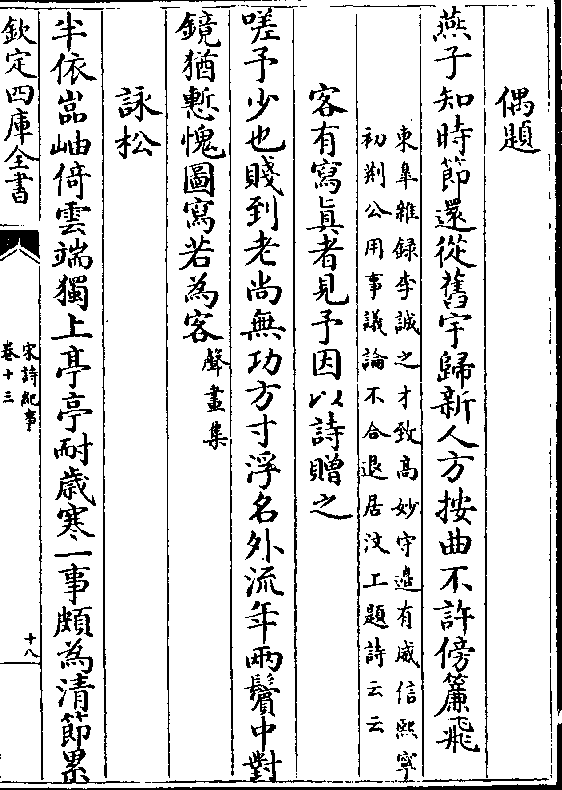 偶題
燕子知時節還從舊宇歸新人方按曲不許傍簾飛
東臯雜録李誠之才致高妙守邉有威信熙寧
初荆公用事議論不合退居汶上題詩云云
客有寫真者見予因以詩贈之
嗟予少也賤到老尚無功方寸浮名外流年兩鬢中對
鏡猶慙愧圖寫若為客聲畫集
詠松
半依嵓岫倚雲端獨上亭亭耐歳寒一事頗為清節累
欽定四庫全書
宋詩紀事
卷十三
十八